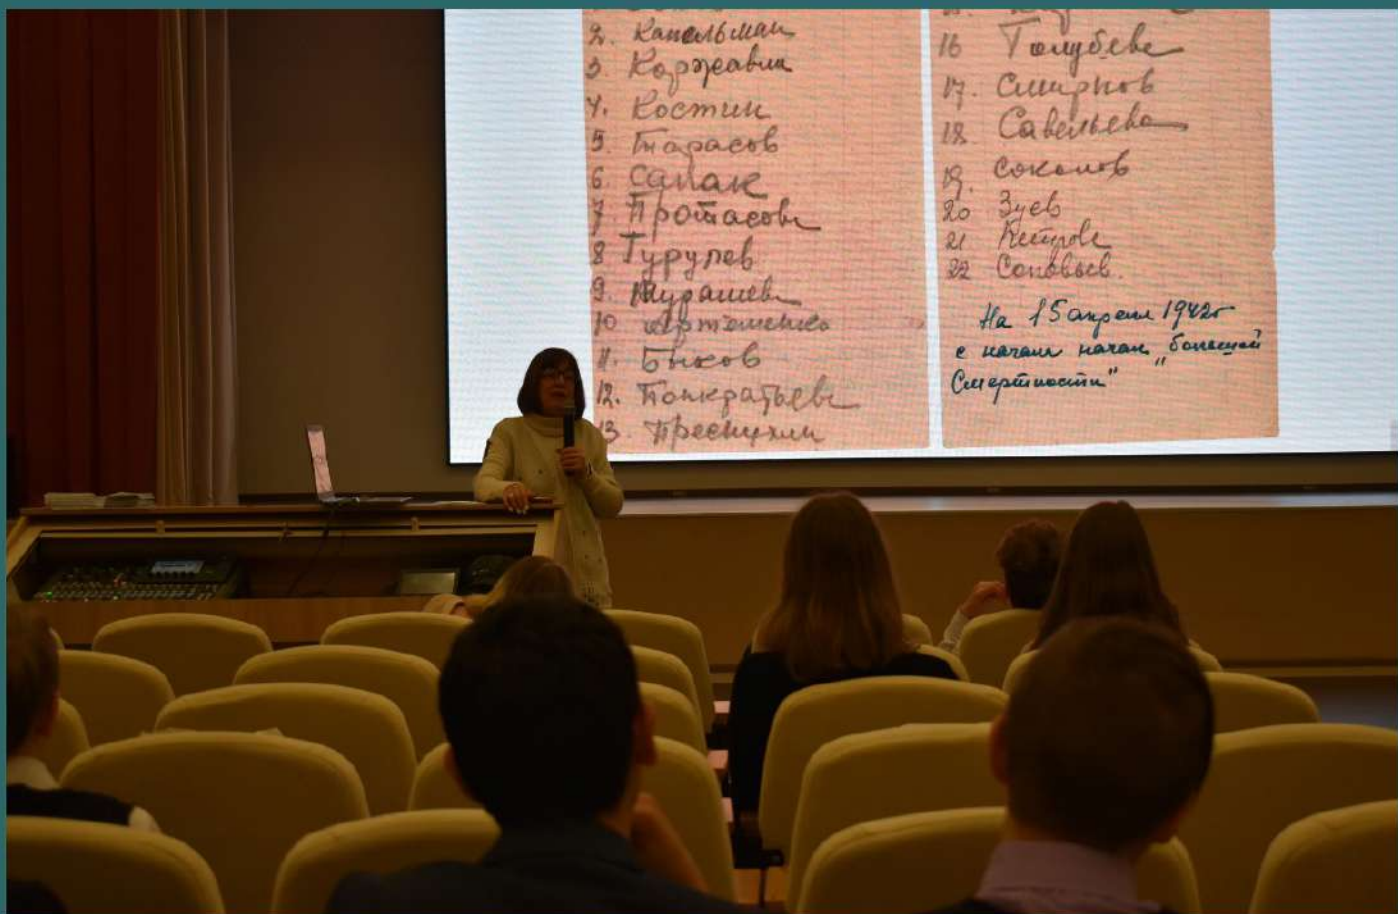 2. Капельман
3. Коржавин
4. Костин
5. Тарасов
6 Сапак
7 Протасова
8 Гурулев
9. Мурашева
10 Артеменко
11. Быков
12. Панкратьева
13. Преснухин
16 Голубева
17. Смирнов
18. Савельева
19. Соколов
20 Зуев
21 Петрова
22 Соловьев.
На 15 апреля 1942г
с начала начала "большой
Смертности"